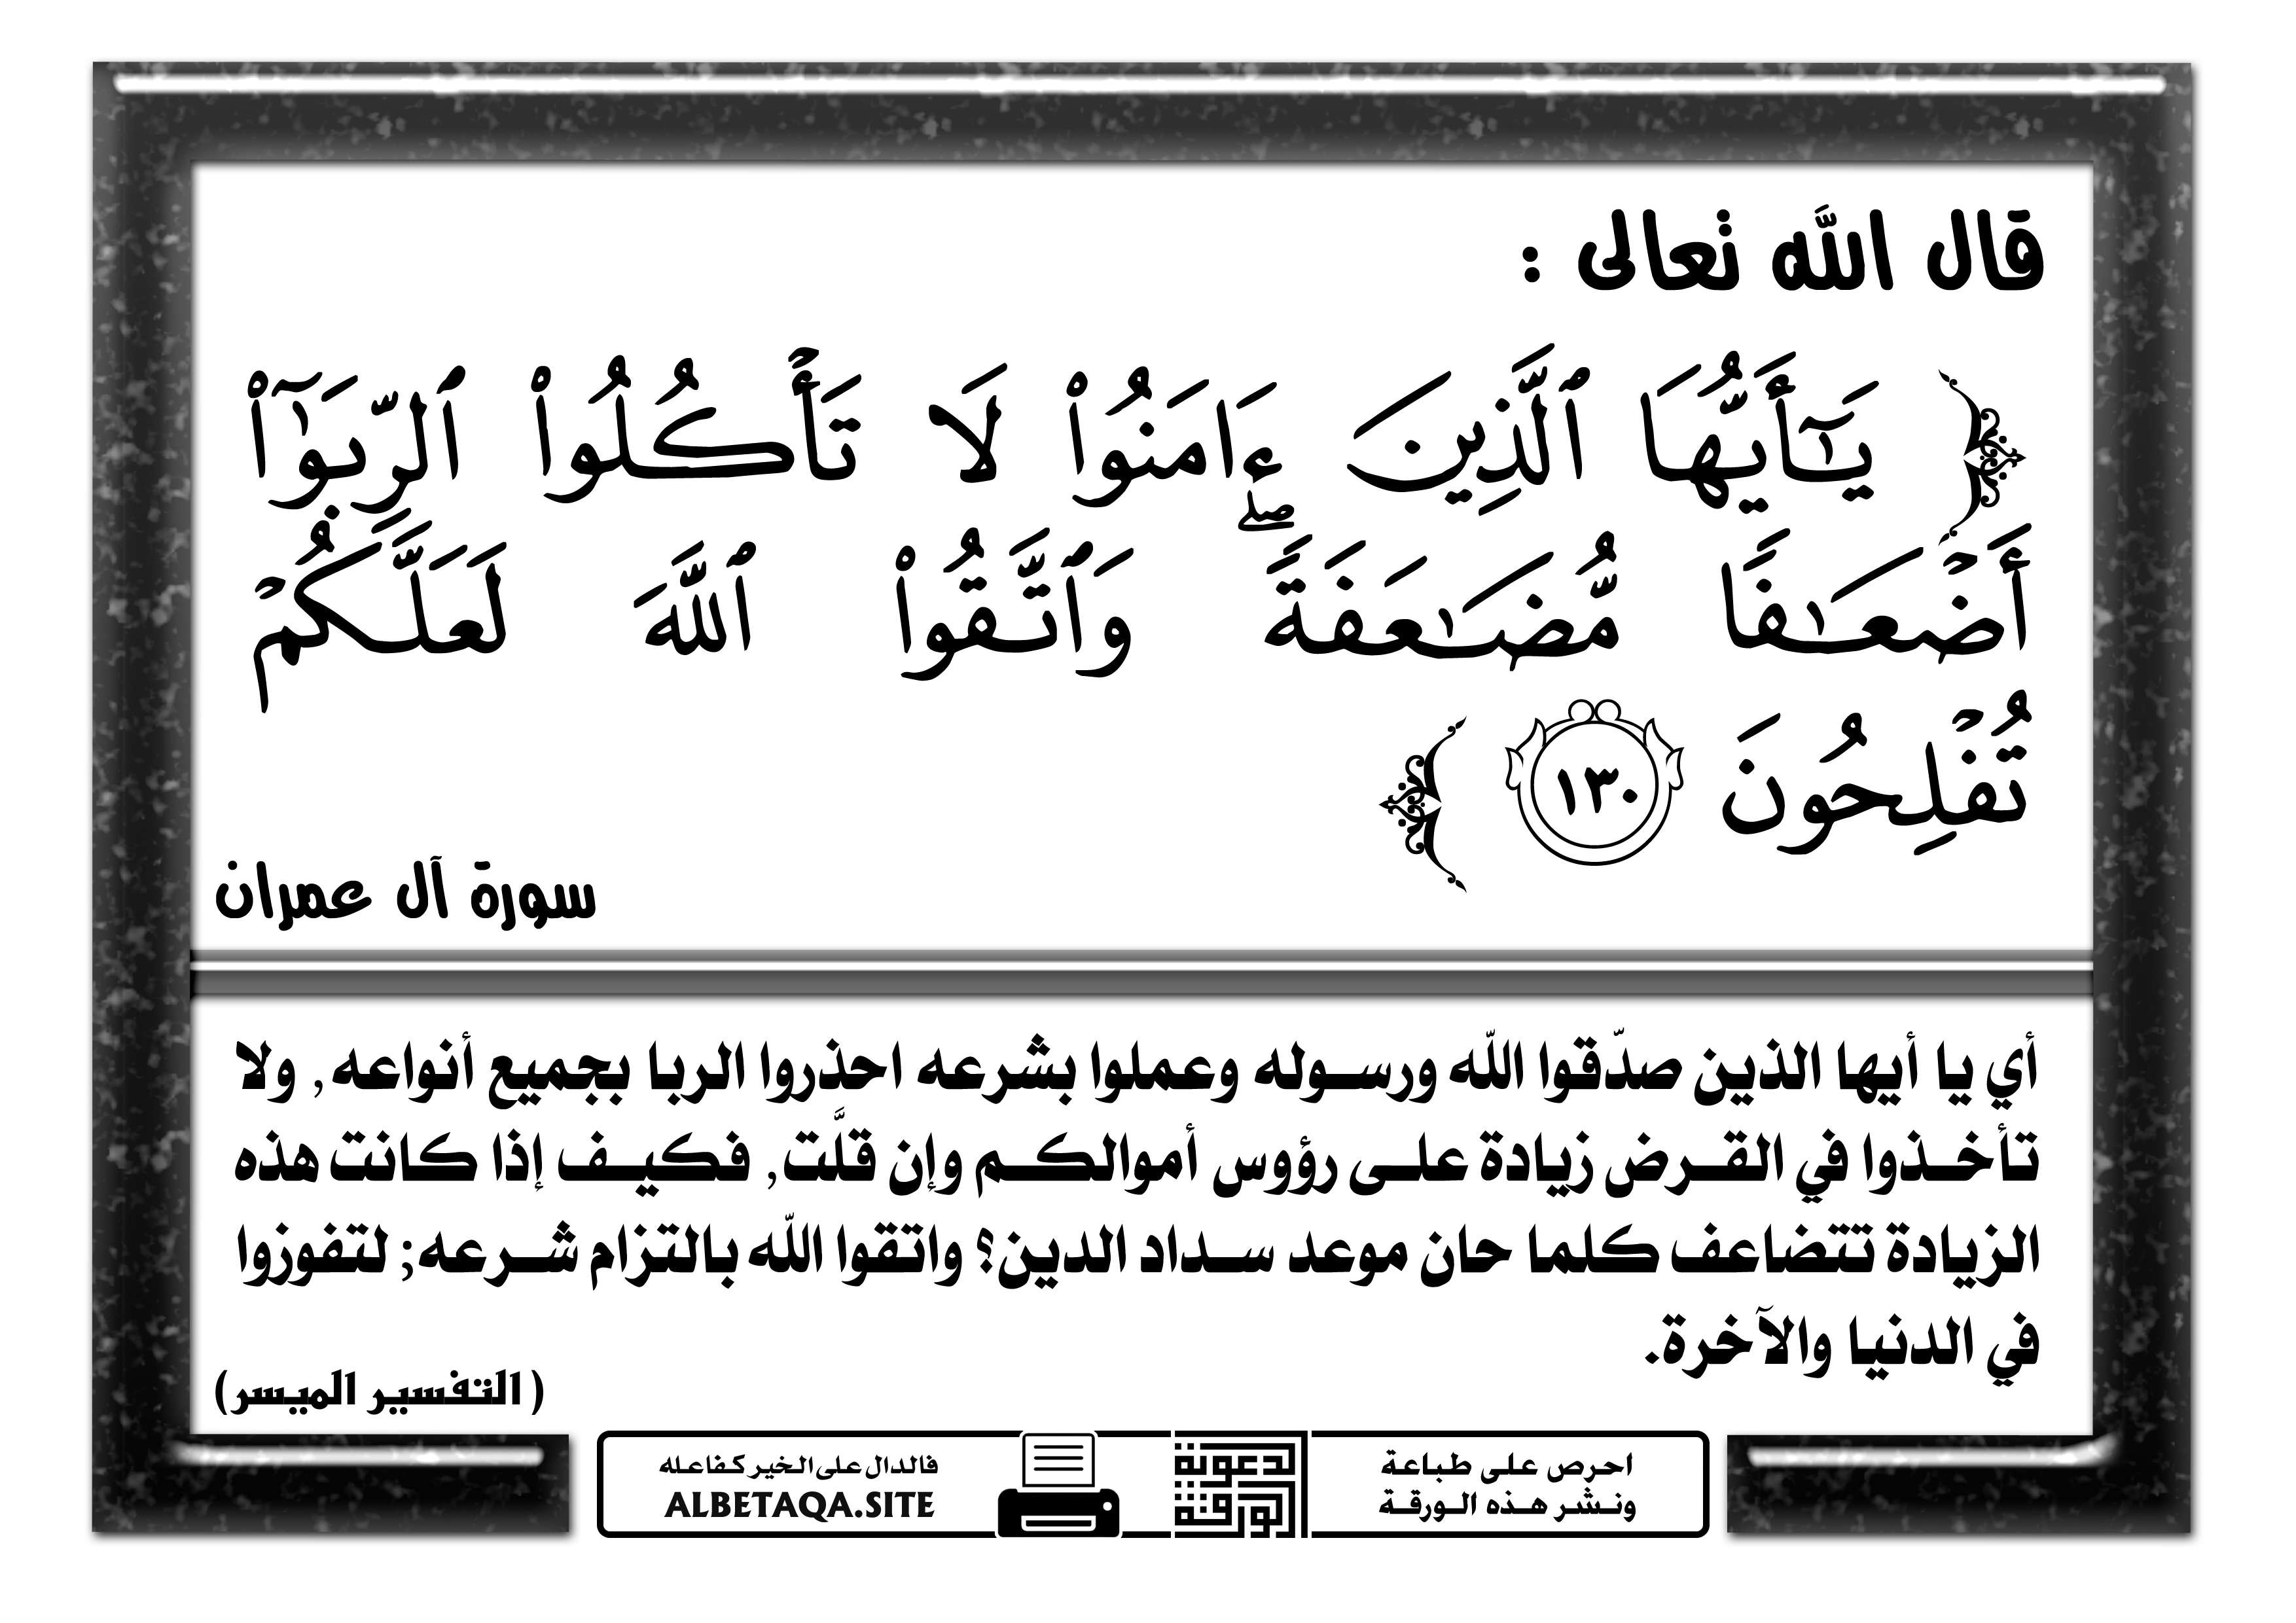 قال الله تعالى :
﴿ يَٰٓأَيُّهَا ٱلَّذِينَ ءَامَنُواْ لَا تَأۡكُلُواْ ٱلرِّبَوٰٓاْ
أَضۡعَٰفٗا مُّضَٰعَفَةٗۖ وَٱتَّقُواْ ٱللَّهَ لَعَلَّكُمۡ
تُفۡلِحُونَ ١٣٠ ﴾
سورة آل عمران
أي يا أيها الذين صدّقوا الله ورسوله وعملوا بشرعه احذروا الربا بجميع أنواعه, ولا
تأخذوا في القرض زيادة على رؤوس أموالكم وإن قلَّت, فكيف إذا كانت هذه
الزيادة تتضاعف كلما حان موعد سداد الدين؟ واتقوا الله بالتزام شرعه; لتفوزوا
في الدنيا والآخرة.
( التفسير الميسر)
احرص على طباعة
ونشر هذه الورقة
الدعوية
الورقة
فالدال على الخير كفاعله
ALBETAQA.SITE